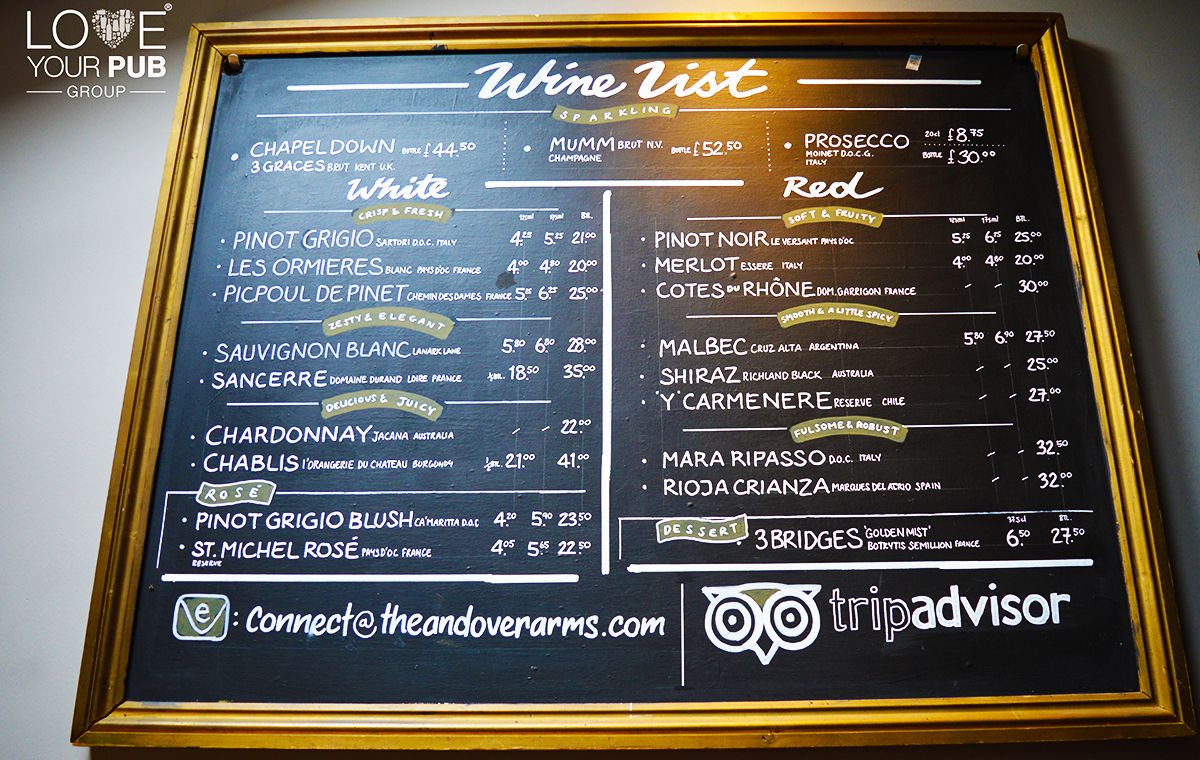 LOVE®
YOUR PUB
GROUP
Wine List
SPARKLING
• CHAPEL DOWN BOTTLE £44.50
3 GRACES BRUT KENT U.K.
• MUMM BRUT N.V. BOTTLE £52.50
CHAMPAGNE
• PROSECCO 20cl £8.75
MOINET D.O.C.G. BOTTLE £30.00
ITALY
White
CRISP & FRESH
125ml 175ml BTL.
• PINOT GRIGIO SARTORI D.O.C. ITALY 4.25 5.25 21.00
• LES ORMIERES BLANC PAYS D'OC FRANCE 4.00 4.80 20.00
• PICPOUL DE PINET CHEMIN DES DAMES FRANCE 5.25 6.25 25.00
ZESTY & ELEGANT
• SAUVIGNON BLANC LANARK LANE 5.80 6.80 28.00
• SANCERRE DOMAINE DURAND LOIRE FRANCE ½BTL. 18.50 35.00
DELICIOUS & JUICY
• CHARDONNAY JACANA AUSTRALIA - - 22.00
• CHABLIS l'ORANGERIE DU CHATEAU BURGONDY ½BTL. 21.00 41.00
ROSÉ
• PINOT GRIGIO BLUSH CA'MARITTA D.O.C 4.20 5.90 23.50
• ST. MICHEL ROSÉ PAYS D'OC FRANCE 4.05 5.65 22.50
RESERVE
Red
SOFT & FRUITY
125ml 175ml BTL.
• PINOT NOIR LE VERSANT PAYS D'OC 5.75 6.75 25.00
• MERLOT ESSERE ITALY 4.00 4.80 20.00
• COTES DU RHÔNE DOM. GARRIGON FRANCE - - 30.00
SMOOTH & A LITTLE SPICY
• MALBEC CRUZ ALTA ARGENTINA 5.80 6.90 27.50
• SHIRAZ RICHLAND BLACK AUSTRALIA - - 25.00
• 'Y' CARMENERE RESERVE CHILE - - 27.00
FULSOME & ROBUST
• MARA RIPASSO D.O.C. ITALY - - 32.50
• RIOJA CRIANZA MARQUES DEL ATRIO SPAIN - - 32.00
DESSERT
37.5cl BTL.
• 3 BRIDGES 'GOLDEN MIST' 6.50 27.50
BOTRYTIS SEMILLION FRANCE
e : connect@theandoverarms.com
tripadvisor